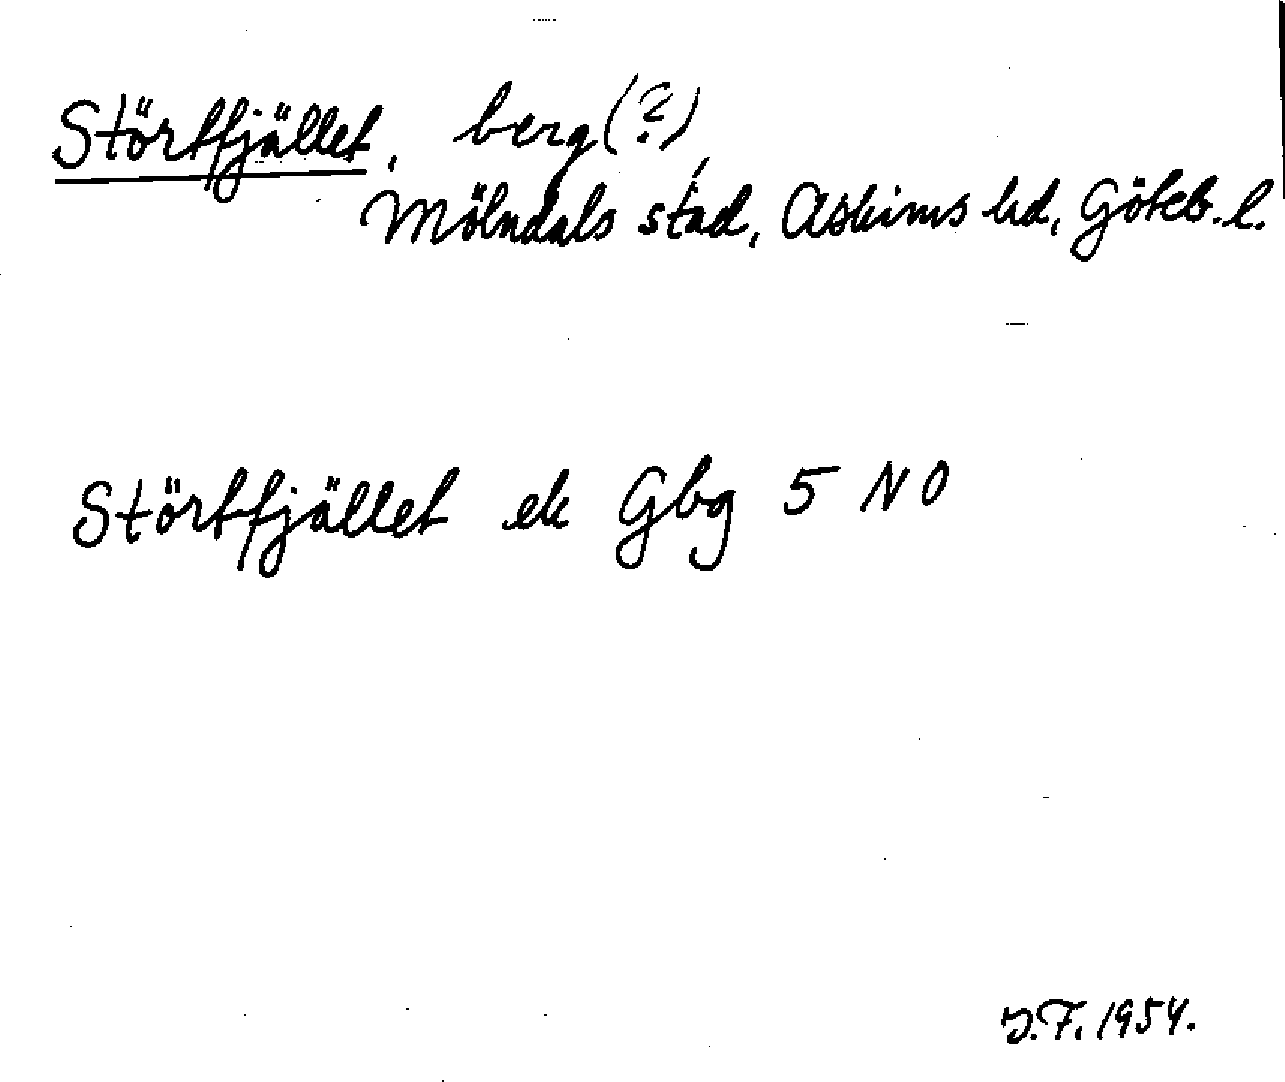 Störtfjället, berg (?)
Mölndals stad, Askims hd, Göteb. l.
Störtfjället ek Gbg 5 NO
J.F. 1954.